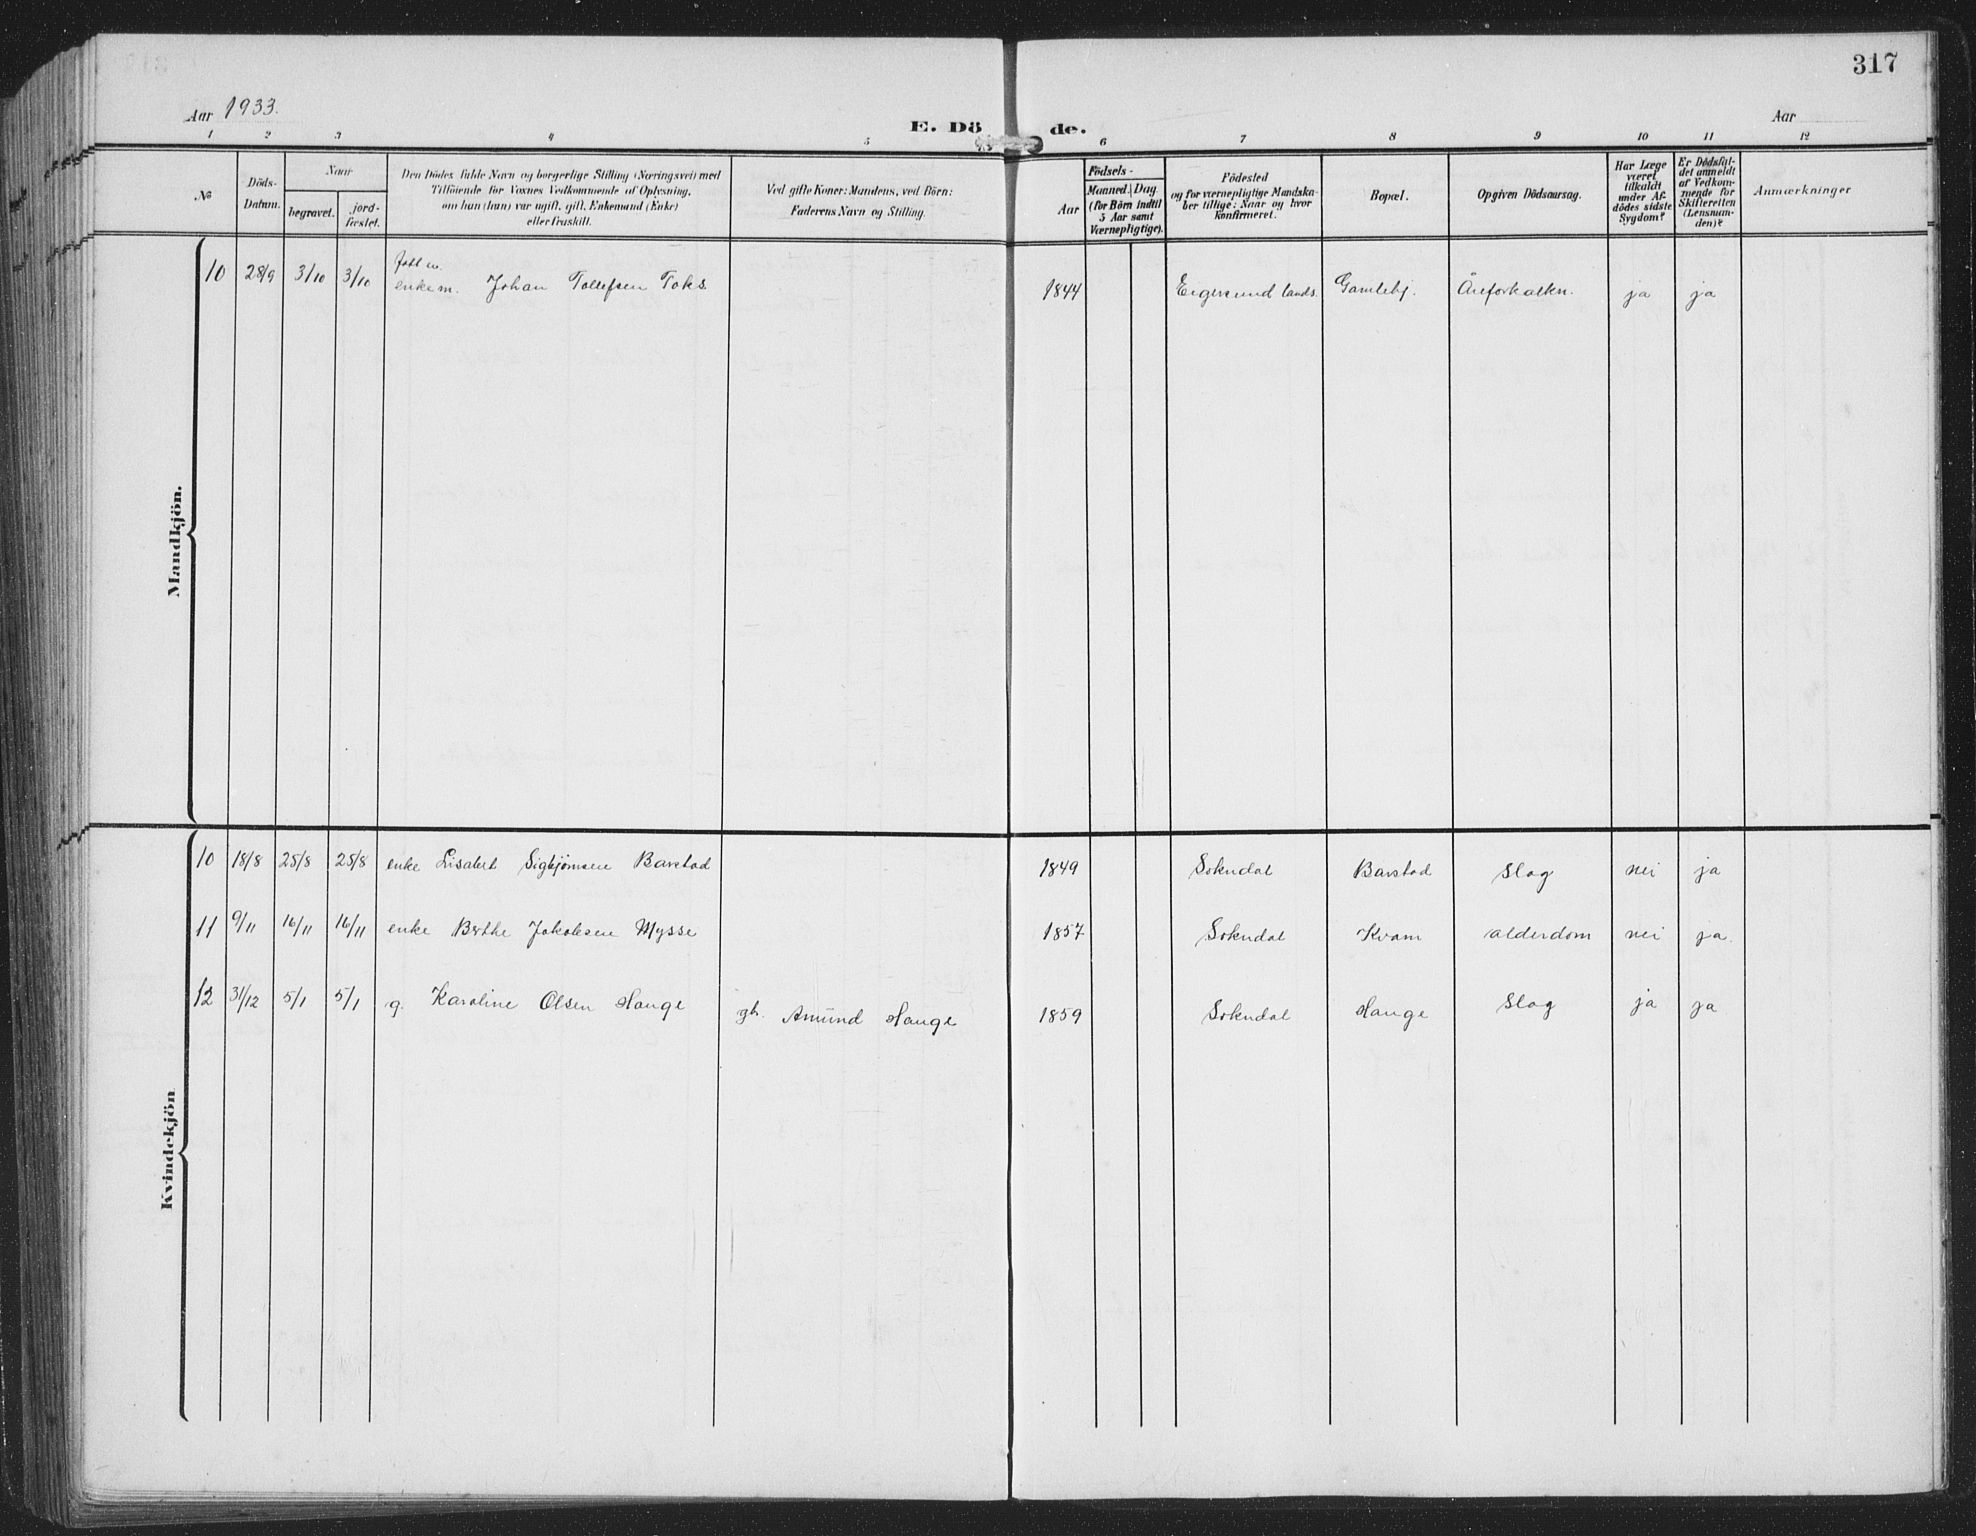 317
Aar 1933.
E. Dö de.
Aar
1 2 3 4 5 6 7 8 9 10 11 12
No
Döds-Datum.
Naar
begravet.
jord-fæstet.
Den Dödes fulde Navn og borgerlige Stilling (Næringsvei) med
Tilföiende for Voxnes Vedkommende af Oplysning,
om han (hun) var ugift, gift, Enkemand (Enke)
eller fraskilt.
Ved gifte Koner: Mandens, ved Börn:
Faderens Navn og Stilling.
Födsels-
Aar
Maaned. Dag
(for Börn indtil
5 Aar samt
Værnepligtige).
Födested
og for værnepligtige Mandska-
ber tillige: Naar og hvor
konfirmeret.
Bopæl.
Opgiven Dödsaarsag.
Har Læge
været
tilkaldt
under Af-
dödes sidste
Sygdom?
Er Dödsfal-
det anmeldt
af Vedkom-
mende for
Skifteretten
(Lensman-
den)?
Anmærkninger
Mandkjön.
10 28/9 3/10 3/10 enkem. Johan Tollefsen Toks. 1844 Eigersund lands. Gamleby. Åreforkalkn. ja ja
Kvindekjön
10 18/8 25/8 25/8 enke Lisabet Sigbjørnsen Barstad 1849 Sokndal Barstad Slag nei ja
11 9/11 16/11 16/11 enke Berthe Jakobsen Mysse 1857 Sokndal Kvam alderdom nei ja.
12 31/12 5/1 5/1 g. Karoline Olsen Hauge gb. Amund Hauge 1859 Sokndal Hauge Slag ja ja